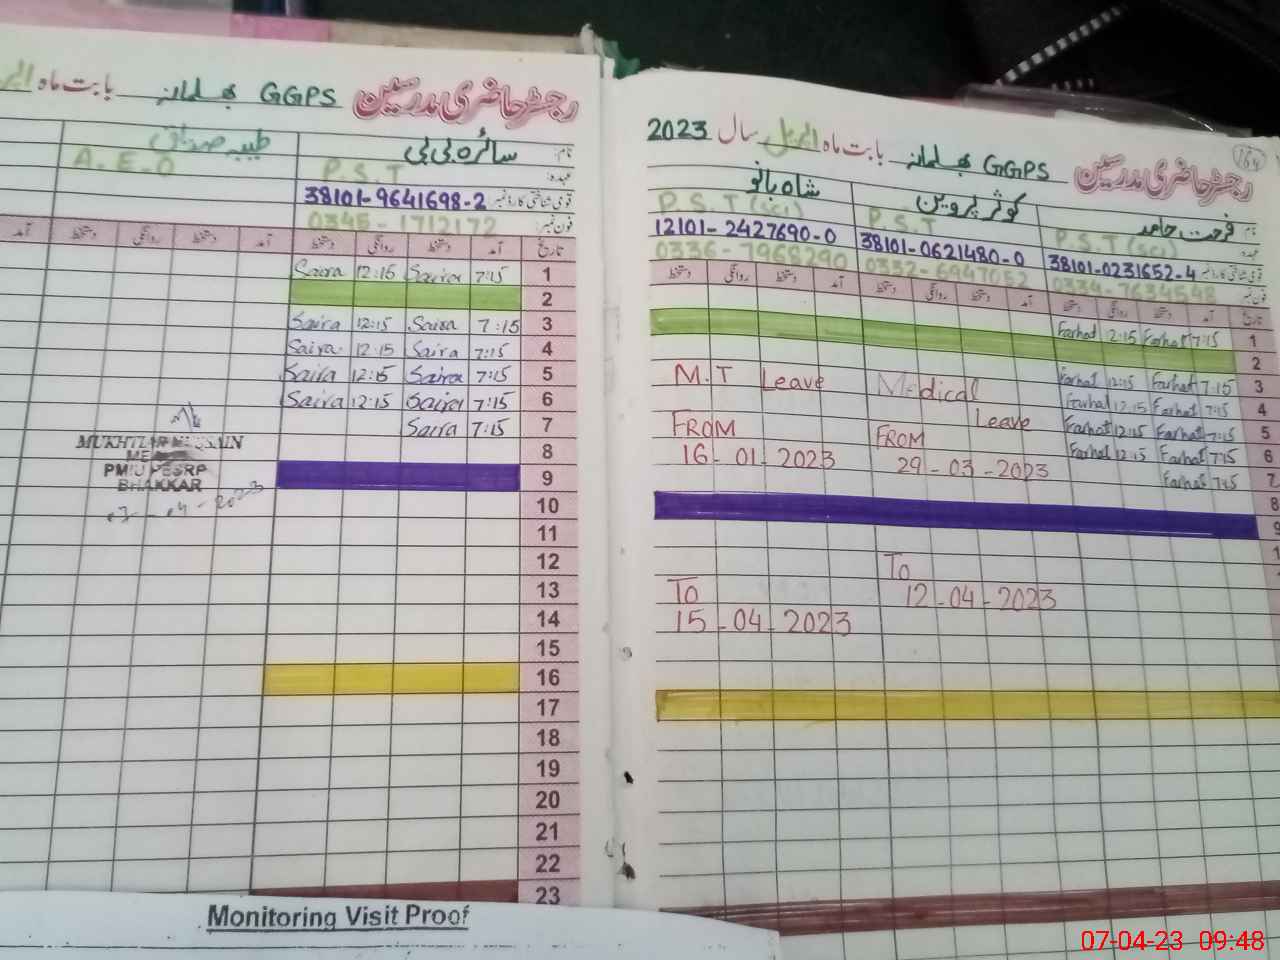 رجسٹر حاضری مدرسین GGPS بھلمانہ بابت ماہ
نام: سائرہ بی بی طیبہ صدیق
عہدہ: P.S.T A.E.O
قومی شناختی کارڈ نمبر 38101-9641698-2
فون نمبر: 0345-1712172
تاریخ آمد دستخط روانگی دستخط آمد دستخط روانگی دستخط آمد
1 7:15 Saira 12:15 Saira
2
3 7:15 Saira 12:15 Saira
4 7:15 Saira 12:15 Saira
5 7:15 Saira 12:15 Saira
6 7:15 Saira 12:15 Saira
7 7:15 Saira
8
9
10
11
12
13
14
15
16
17
18
19
20
21
22
23
MUKHTIAR HUSSAIN
PMIU PESRP
BHAKKAR
07-04-2023
164
رجسٹر حاضری مدرسین GGPS بھلمانہ بابت ماہ اپریل سال 2023
نام فرحت حامد کوثر پروین شاہ بانو
عہدہ P.S.T (sci) P.S.T P.S.T (sci)
قومی شناختی کارڈ نمبر 38101-0231652-4 38101-0621480-0 12101-2427690-0
فون نمبر 0334-7634548 0332-6947052 0336-7968290
تاریخ آمد دستخط روانگی دستخط آمد دستخط روانگی دستخط آمد دستخط روانگی دستخط
1 7:15 Farhat 12:15 Farhat
2
3 7:15 Farhat 12:15 Farhat
4 7:15 Farhat 12:15 Farhat
5 7:15 Farhat 12:15 Farhat
6 7:15 Farhat 12:15 Farhat
7 7:15 Farhat
8
9
Medical
Leave
FROM
29-03-2023
To
12-04-2023
M.T Leave
FROM
16-01-2023
To
15-04-2023
Monitoring Visit Proof
07-04-23 09:48